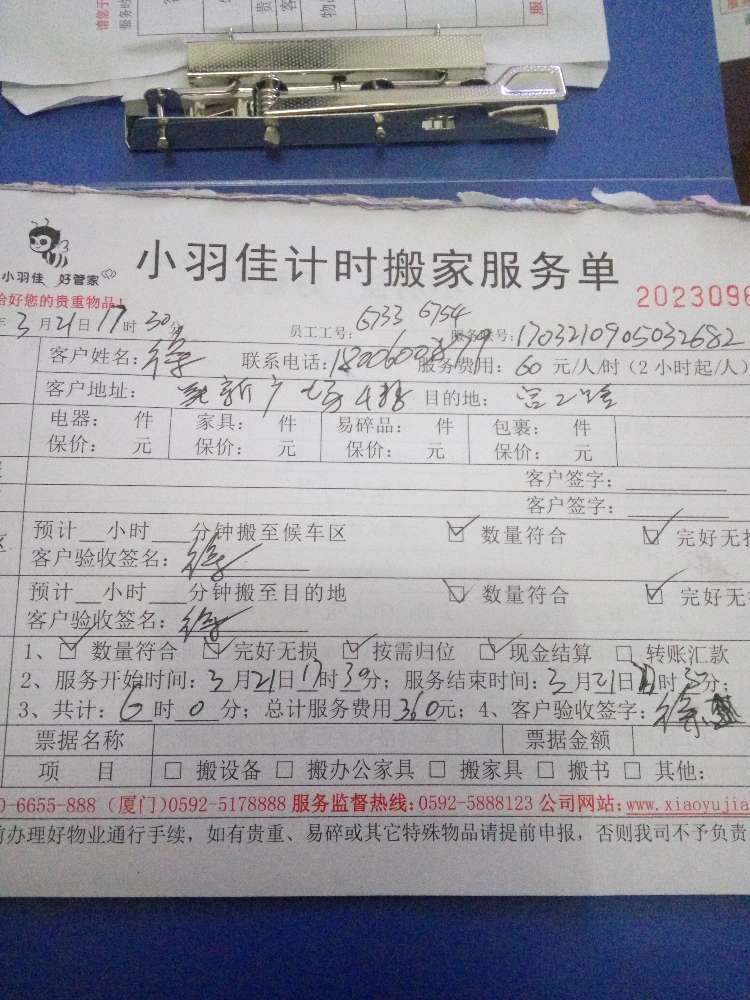 小羽佳 好管家
小羽佳计时搬家服务单
恰好您的贵重物品!
2023098
年3月21日17时30分 员工工号:6733 6754 服务单号:1703210905032682
客户姓名:徐 联系电话: 服务费用:60元/人/时(2小时起/人)
客户地址: 新广场4楼 目的地:
电器: 件 家具: 件 易碎品: 件 包裹: 件
保价: 元 保价: 元 保价: 元 保价: 元
客户签字:
客户签字:
预计__小时___分钟搬至候车区 ☑ 数量符合 ☑ 完好无损
客户验收签名:徐
预计__小时___分钟搬至目的地 ☑ 数量符合 ☑ 完好无
客户验收签名:徐
1、☑ 数量符合 ☑ 完好无损 ☑ 按需归位 ☑ 现金结算 □ 转账汇款
2、服务开始时间:3月21日17时30分;服务结束时间:3月21日 时30分;
3、共计:6时0分;总计服务费用360元;4、客户验收签字:徐
票据名称 票据金额
项 目 □ 搬设备 □ 搬办公家具 □ 搬家具 □ 搬书 □ 其他:
0-6655-888 (厦门)0592-5178888 服务监督热线:0592-5888123 公司网站:www.xiaoyujia
前办理好物业通行手续,如有贵重、易碎或其它特殊物品请提前申报,否则我司不予负责